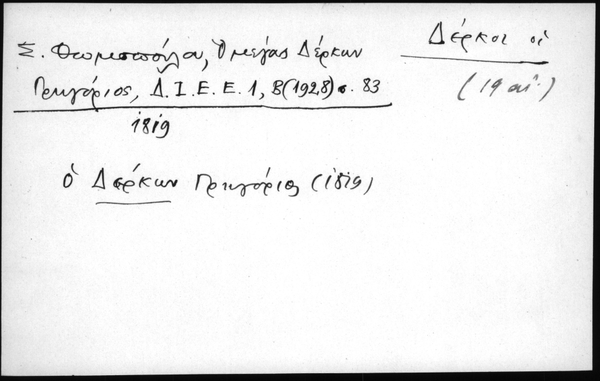 Δέρκοι οἱ
(19 αἰ.)
Σ. Θωμοπούλου, Ὁ μέγας Δέρκων
Γρηγόριος, Δ.Ι.Ε.Ε. 1, Β(1928) σ. 83
1819
ὁ Δέρκων Γρηγόριος (1819)